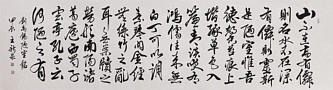 山不在高有仙
則名水不在深
有龍則靈斯是
陋室惟吾德馨
苔痕上階綠草色入
簾青談笑有
鴻儒往來無
白丁可以調
素琴閱金經
無絲竹之亂
耳無案牘之勞
形南陽諸
葛廬西蜀子
雲亭孔子云
何陋之有
劉禹錫陋室銘
甲辰王